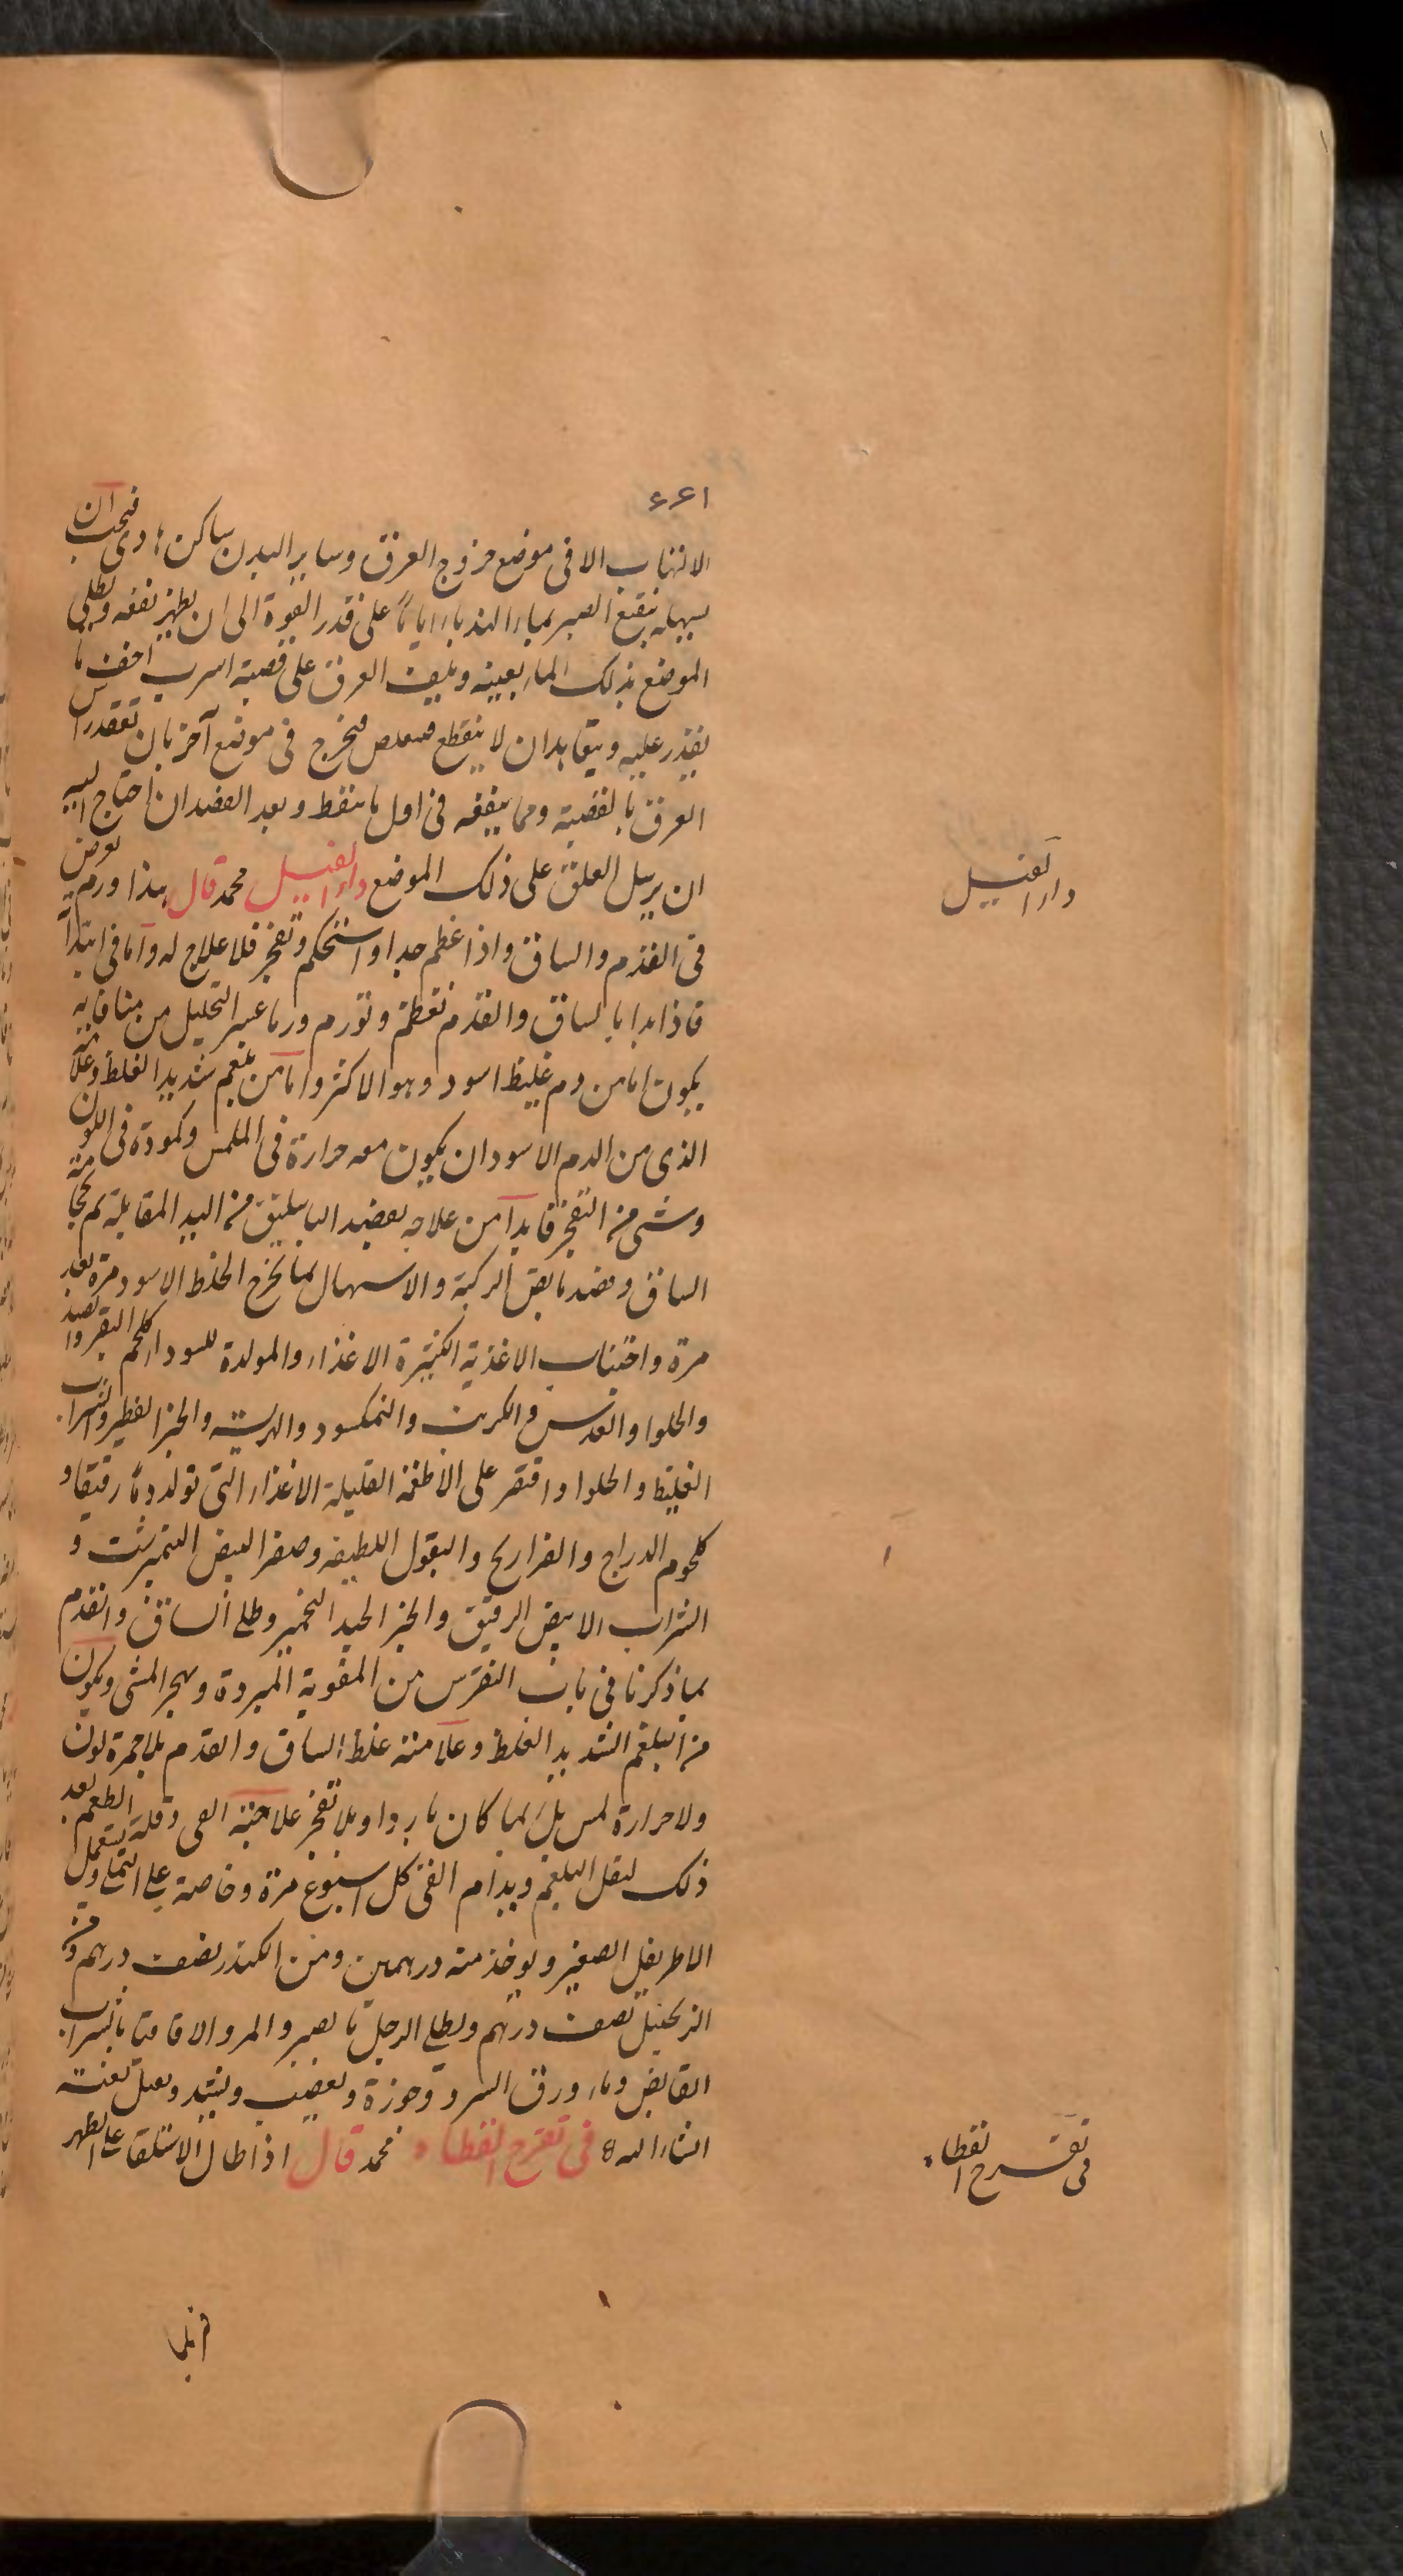 ٤٤١
الالتهاب الا فى موضع خروج العرق وساير البدن ساكن هادى فيجب ان
يسهله بنقيع الصبر بماء الهندباء اياما على قدر القوة الى ان يظهر نفعه ويطلى
الموضع بذلك الماء بعينه ويلف العرق على قصبة اسرب اخف ما
يقدر عليه ويتعاهد ان لا ينقطع فيخرج فى موضع آخر بان
العرق بالقصبة ومما ينفعه فى اول ما يتنفط وبعد الفصد ان احتاج اليه
ان يرسل العلق على ذلك الموضع داء الفيل محمد قال هذا ورم يعرض
فى القدم والساق واذا عظم جدا واستحكم وتفجر فلا علاج له واما فى ابتدا
فاذا بدا بالساق والقدم تعظم وتورم ورما عسر التحليل من
يكون اما من دم غليظ اسود وهو الاكثر واما من بلغم شديد الغلظ وعلامة
الذى من الدم الاسود ان يكون معه حرارة فى الملمس وكمودة فى اللون
وشى من التفجر فابدا من علاجه بفصد الباسليق من اليد المقابلة ثم حجامة
الساق وفصد مابض الركبة والاسهال بما يخرج الخلط الاسود مرة بعد
مرة واجتناب الاغذية الكثيرة الاغذاء والمولدة للسوداء كلحم البقر والصيد
والحلوا والعدس والكرنب والنمكسود والهريسة والخبز الفطير والشراب
الغليظ والحلوا واقتصر على الاطعمة القليلة الاغذاء التى تولد دما رقيقا و
كلحوم الدراج والفراريج والبقول اللطيفة وصفر البيض النيمبرشت و
الشراب الابيض الرقيق والخبز الجيد التخمير وطلى الساق والقدم
بما ذكرنا فى باب النقرس من المقوية المبردة وهجر المشى ويكون
من البلغم الشديد الغلظ وعلامته غلظ الساق والقدم بلا حمرة لون
ولا حرارة لمس بل بما كان باردا وبلا تفجر علاجته القى وقلة الطعم بعد
ذلك ليقل البلغم ويدام القى كل اسبوع مرة وخاصة على التملى ويستعمل
الاطريفل الصغير ويوخذ منه درهمين ومن الكندر نصف درهم ومن
الزنجبيل نصف درهم ويطلى الرجل بالصبر والمر والاقاقيا بالشراب
القابض وماء ورق السرو وجوزه ويعصب ويشد
انشاء الله فى تقرح القطاة محمد قال اذا طال الاستلقا على الظهر
داء الفيل
فى تقرح القطاة